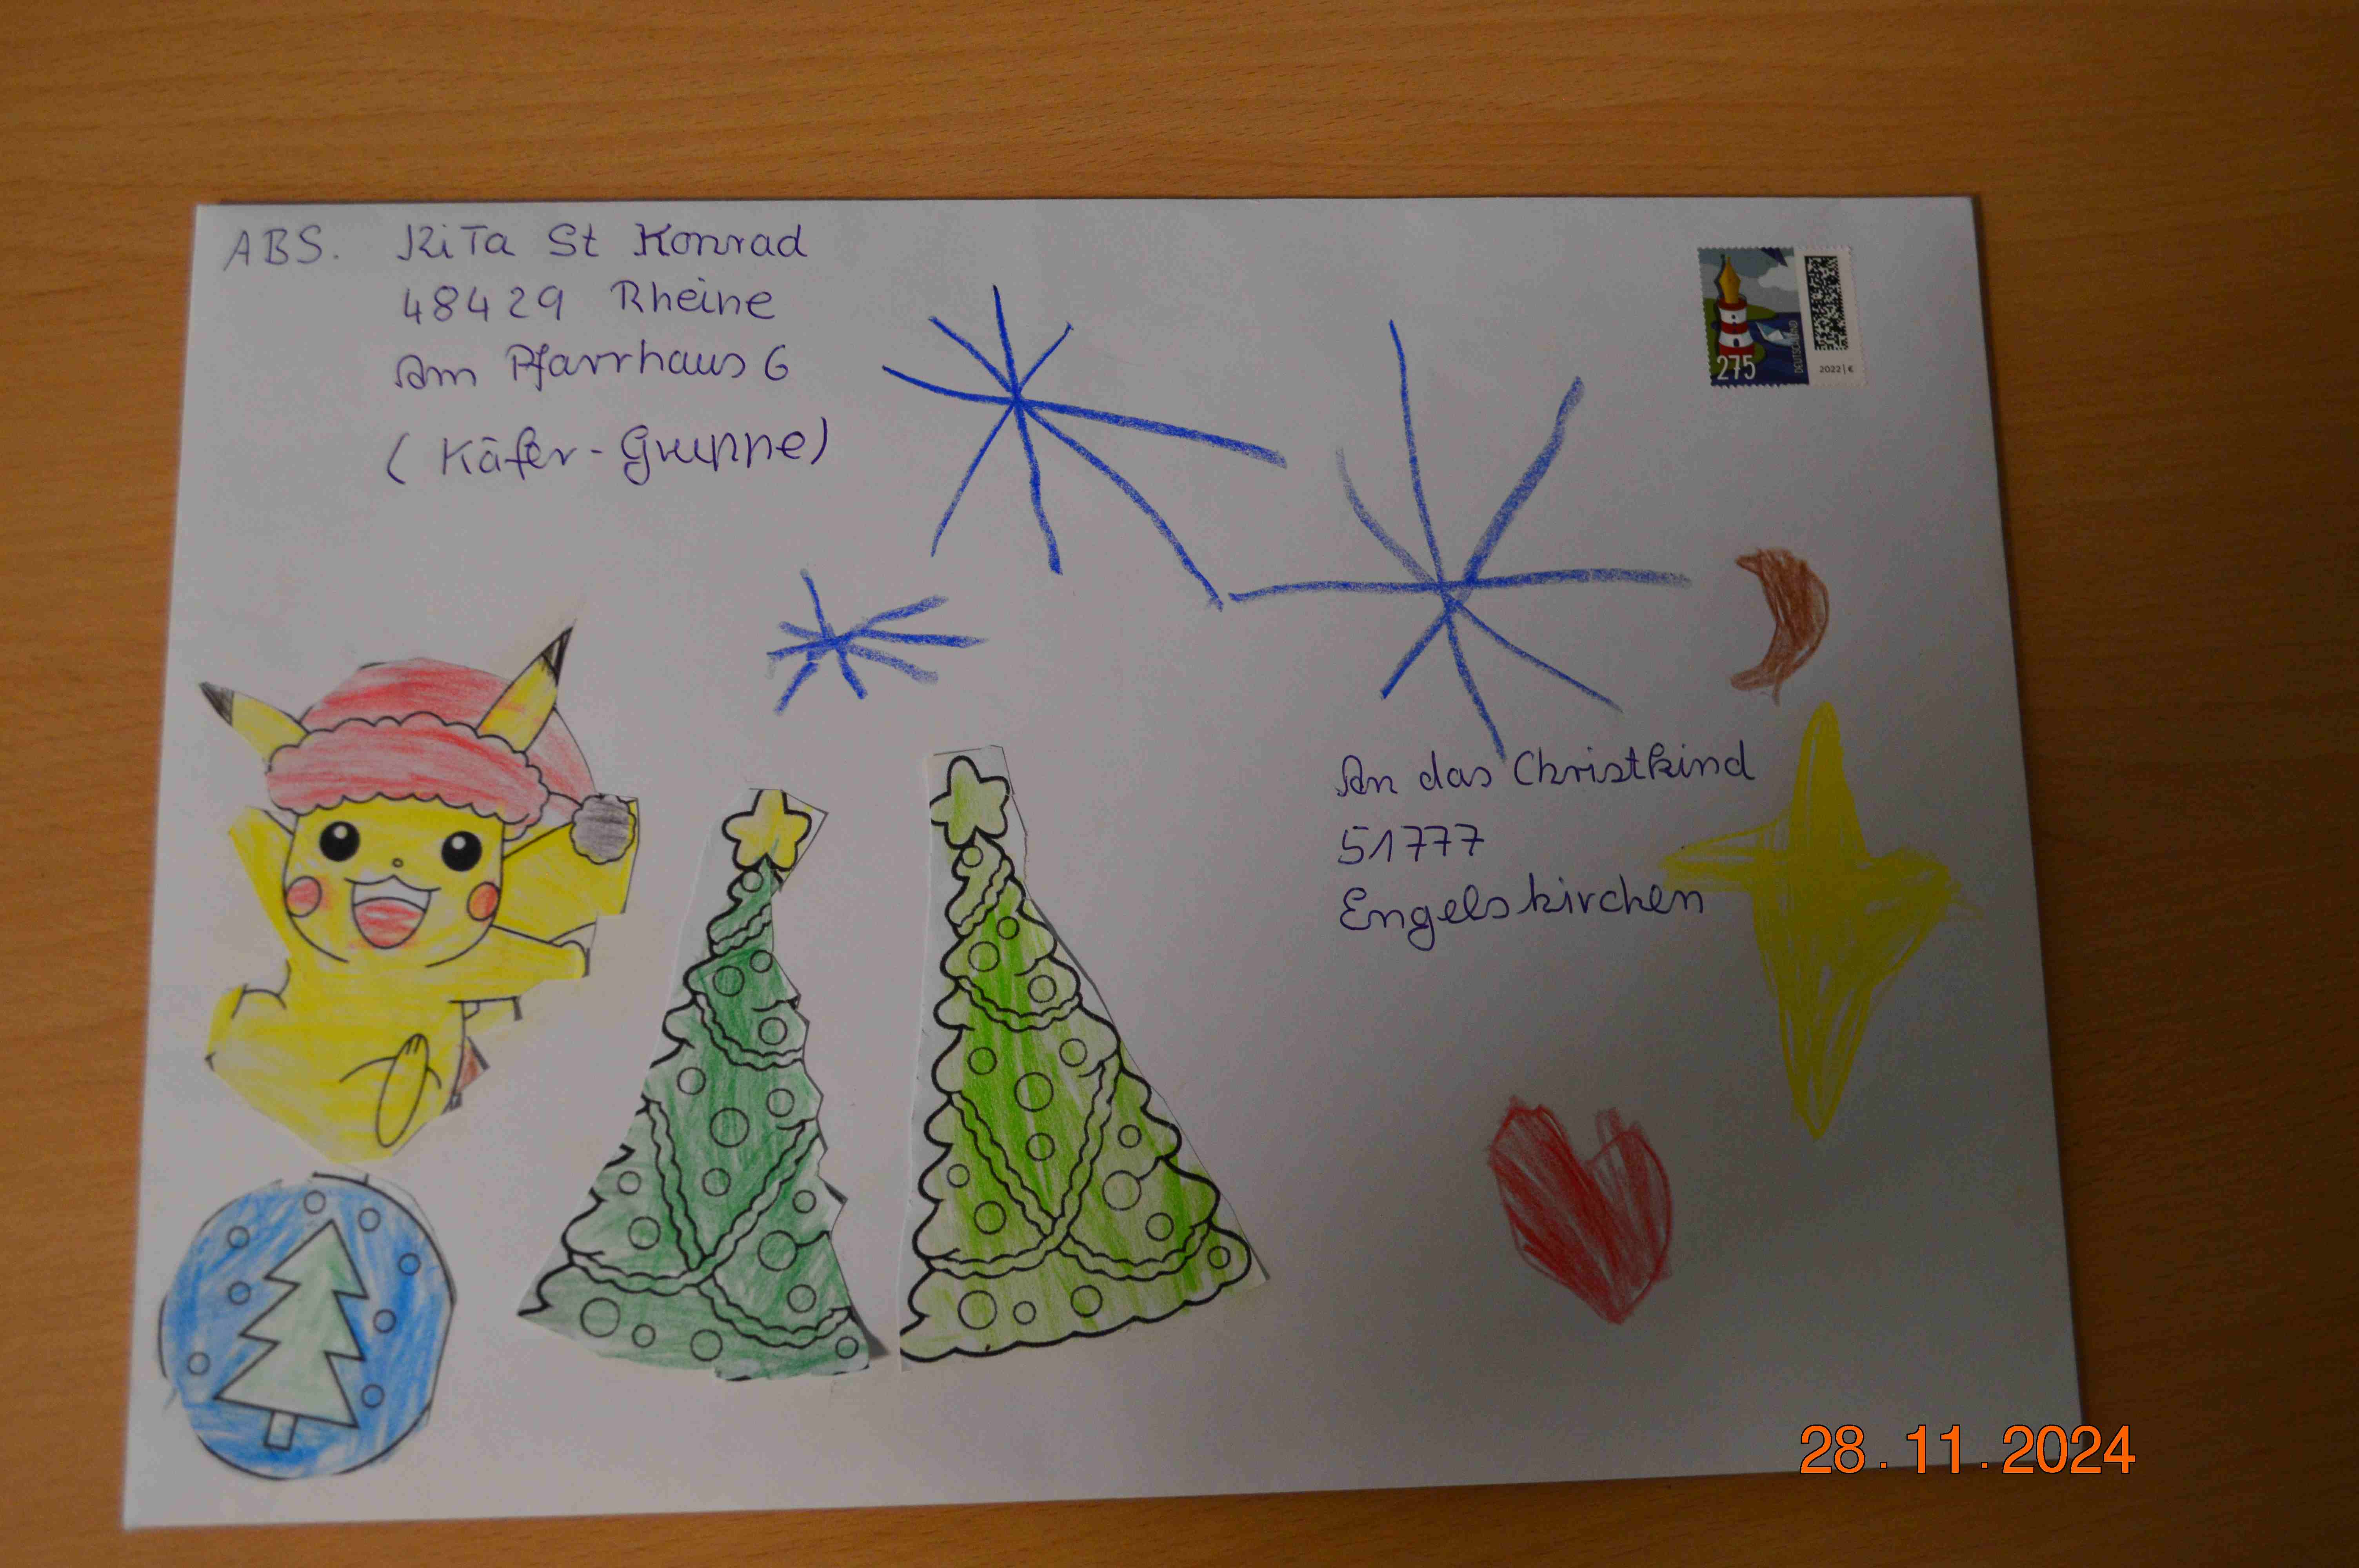 ABS. KiTa St Konrad
48429 Rheine
Am Pfarrhaus 6
(Käfer-Gruppe)
275
DEUTSCHLAND
2022 | €
An das Christkind
51777
Engelskirchen
28.11.2024